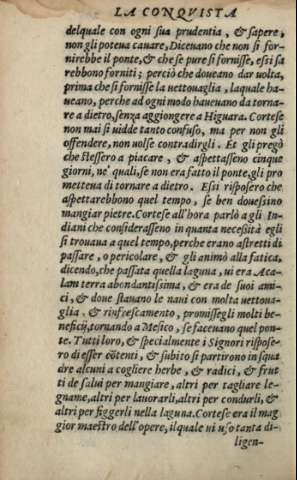 LA CONQVISTA
delquale con ogni sua prudentia, & sapere,
non gli poteua cauare, Diceuano che non si for-
nirebbe il ponte, & che se pure si fornisse, essi sa
rebbono forniti; perciò che doueano dar uolta,
prima che si fornisse la uettouaglia, laquale ha-
ueano, perche ad ogni modo haueuano da torna-
re a dietro, senza aggiongere a Higuara. Cortese
non mai si uidde tanto confuso, ma per non gli
offendere, non uolse contradirgli. Et gli pregò
che stessero a piacare, & aspettassero cinque
giorni, ne' quali, se non era fatto il ponte, gli pro
metteua di tornare a dietro. Essi risposero che
aspettarebbono quel tempo, se ben douessino
mangiar pietre. Cortese all'hora parlò a gli In-
diani che considerassero in quanta necessità egli
si trouaua a quel tempo, perche erano astretti di
passare, o pericolare, & gli animò alla fatica,
dicendo, che passata quella laguna, ui era Aca-
lam terra abondantissima, & era de suoi ami-
ci, & doue stauano le naui con molta uettoua-
glia, & rinfrescamento, promissegli molti be-
neficij, tornando a Mesico, se faceuano quel pon-
te. Tutti loro, & specialmente i Signori rispose-
ro di esser cōtenti, & subito si partirono in squa
dre alcuni a cogliere herbe, & radici, & frut
ti de salui per mangiare, altri per tagliare le-
gname, altri per lauorarli, altri per condurli, &
altri per figgerli nella laguna. Cortese era il mag
gior maestro dell'opere, ilquale ui uso tanta di-
ligen-